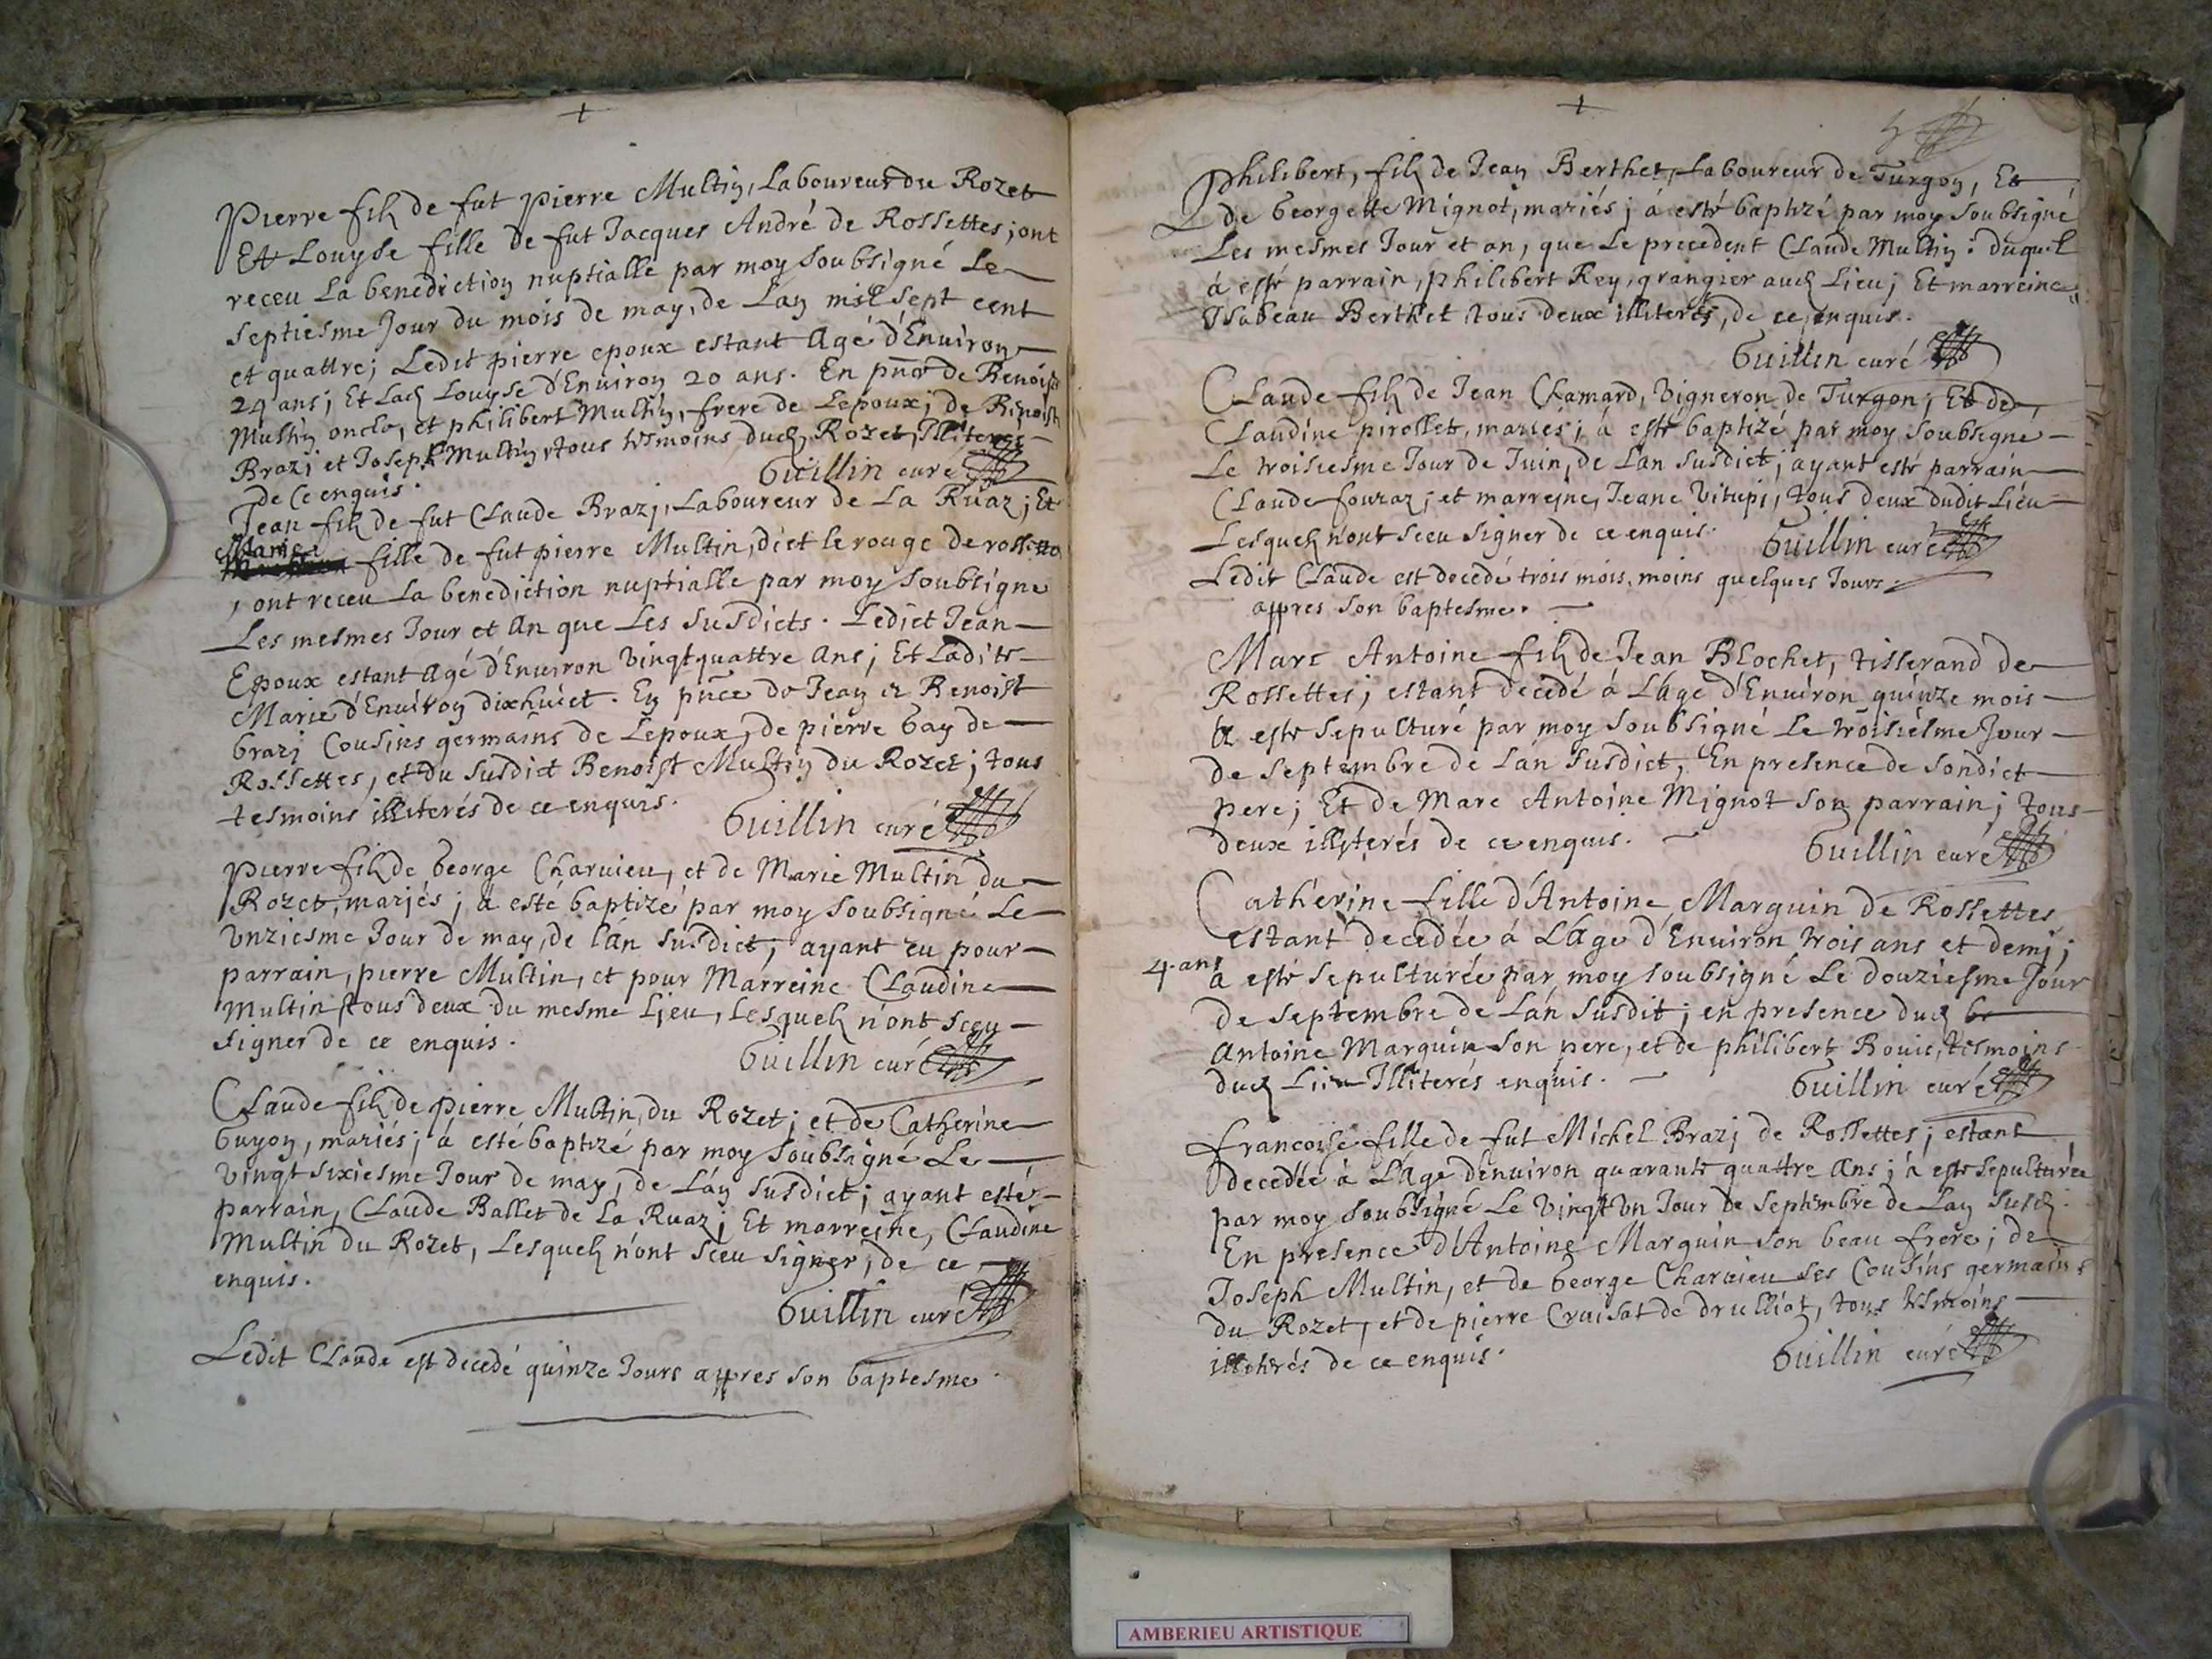 +
Pierre filz de fut pierre Multin, Laboureur du Rozet
Et Louyse fille de fut Jacques André de Rossettes; ont
receu La benediction nuptialle par moy soubsigné Le
septiesme Jour du mois de may, de Lan mil sept cent
et quattre; Ledit pierre epoux estant Agé d'Environ
24 ans; Et Lad. Louyse d'Environ 20 ans. En pnce de Benoist
Multin oncle, et philibert Multin, frere de Lepoux; de Benoist
Brazi et Joseph Multin, tous tesmoins dud. Rozet, Illiterés
de ce enquis.
Guillin curé
Jean filz de fut Claude Brazi, Laboureur de La Ruaz; Et
Marie
fille de fut pierre Multin, dict le rouge de rossettes
, ont receu La benediction nuptialle par moy soubsigné
Les mesmes Jour et An que Les susdicts. Ledict Jean
Epoux estant Agé d'Environ Vingt quattre Ans; Et Ladite
Marie d'Environ dixhuict. En pnce de Jean & Benoist
brazi Cousins germains de Lepoux, de pierre Gay de
Rossettes, et du susdict Benoist Multin du Rozet; tous
tesmoins illiterés de ce enquis.
Guillin curé
Pierre filz de George Charvieu, et de Marie Multin du
Rozet, mariés; à esté baptizé par moy soubsigné Le
Vnziesme Jour de may, de l'an susdict; ayant eu pour
parrain, pierre Multin, et pour Marreine Claudine
Multin tous deux du mesme Lieu, Lesquelz n'ont sceu
signer de ce enquis.
Guillin curé
Claude filz de pierre Multin, du Rozet; et de Catherine
Guyon, mariés; à esté baptizé par moy soubsigné Le
vingt sixiesme Jour de may, de Lan susdict; ayant esté
parrain, Claude Ballet de La Ruaz; Et marreine, Claudine
Multin du Rozet, Lesquelz n'ont sceu signer, de ce
enquis.
Guillin curé
Ledit Claude est decedé quinze Jours appres son baptesme.
+
Philibert, filz de Jean Berthet, Laboureur de Turgon, Et
de Georgette Mignot, mariés; à esté baptizé par moy soubsigné
Les mesmes Jour et an, que Le precedent Claude Multin: duquel
à esté parrain, philibert Rey, grangier aud. Lieu; Et marreine
Ysabeau Berthet, tous deux illiterés, de ce enquis.
Guillin curé
Claude filz de Jean Chamard, Vigneron de Turgon; Et de
Claudine pirollet, mariés; à esté baptizé par moy soubsigné
Le troisiesme Jour de Juin, de Lan susdict; ayant esté parrain
Claude fouraz; et marreine, Jeane Vitupi, tous deux dudit Lieu
Lesquelz n'ont sceu signer de ce enquis.
Guillin curé
Ledit Claude est decedé trois mois, moins quelques Jours
appres son baptesme.
Marc Antoine filz de Jean Blochet, tisserand de
Rossettes; estant decedé à L'age d'Environ quinze mois
A esté sepulturé par moy soubsigné Le troisiesme Jour
de septembre de Lan susdict, En presence de sondict
pere; Et de Marc Antoine Mignot son parrain; tous
deux illyterés de ce enquis.
Guillin curé
Catherine fille d'Antoine Marguin de Rossettes
estant decedée à L'Age d'Environ trois ans et demi;
4. ans
à esté sepulturée par moy soubsigné Le douziesme Jour
de septembre de Lan susdit; en presence dud.
Antoine Marguin son pere, et de philibert Bouie, tesmoins
dud. Lieu Illiterés enquis.
Guillin curé
francoise fille de fut Michel Brazi de Rossettes; estant
decedée à L'Age denviron quarante quattre Ans; à esté sepulturée
par moy soubsigné Le Vingt Vn Jour de septembre de Lan susd.
En presence d'Antoine Marguin son beau frere; de
Joseph Multin, et de George Charvieu ses Cousins germains
du Rozet, et de pierre Cruisat de drulliat, tous tesmoins
illiterés de ce enquis.
Guillin curé
AMBERIEU ARTISTIQUE